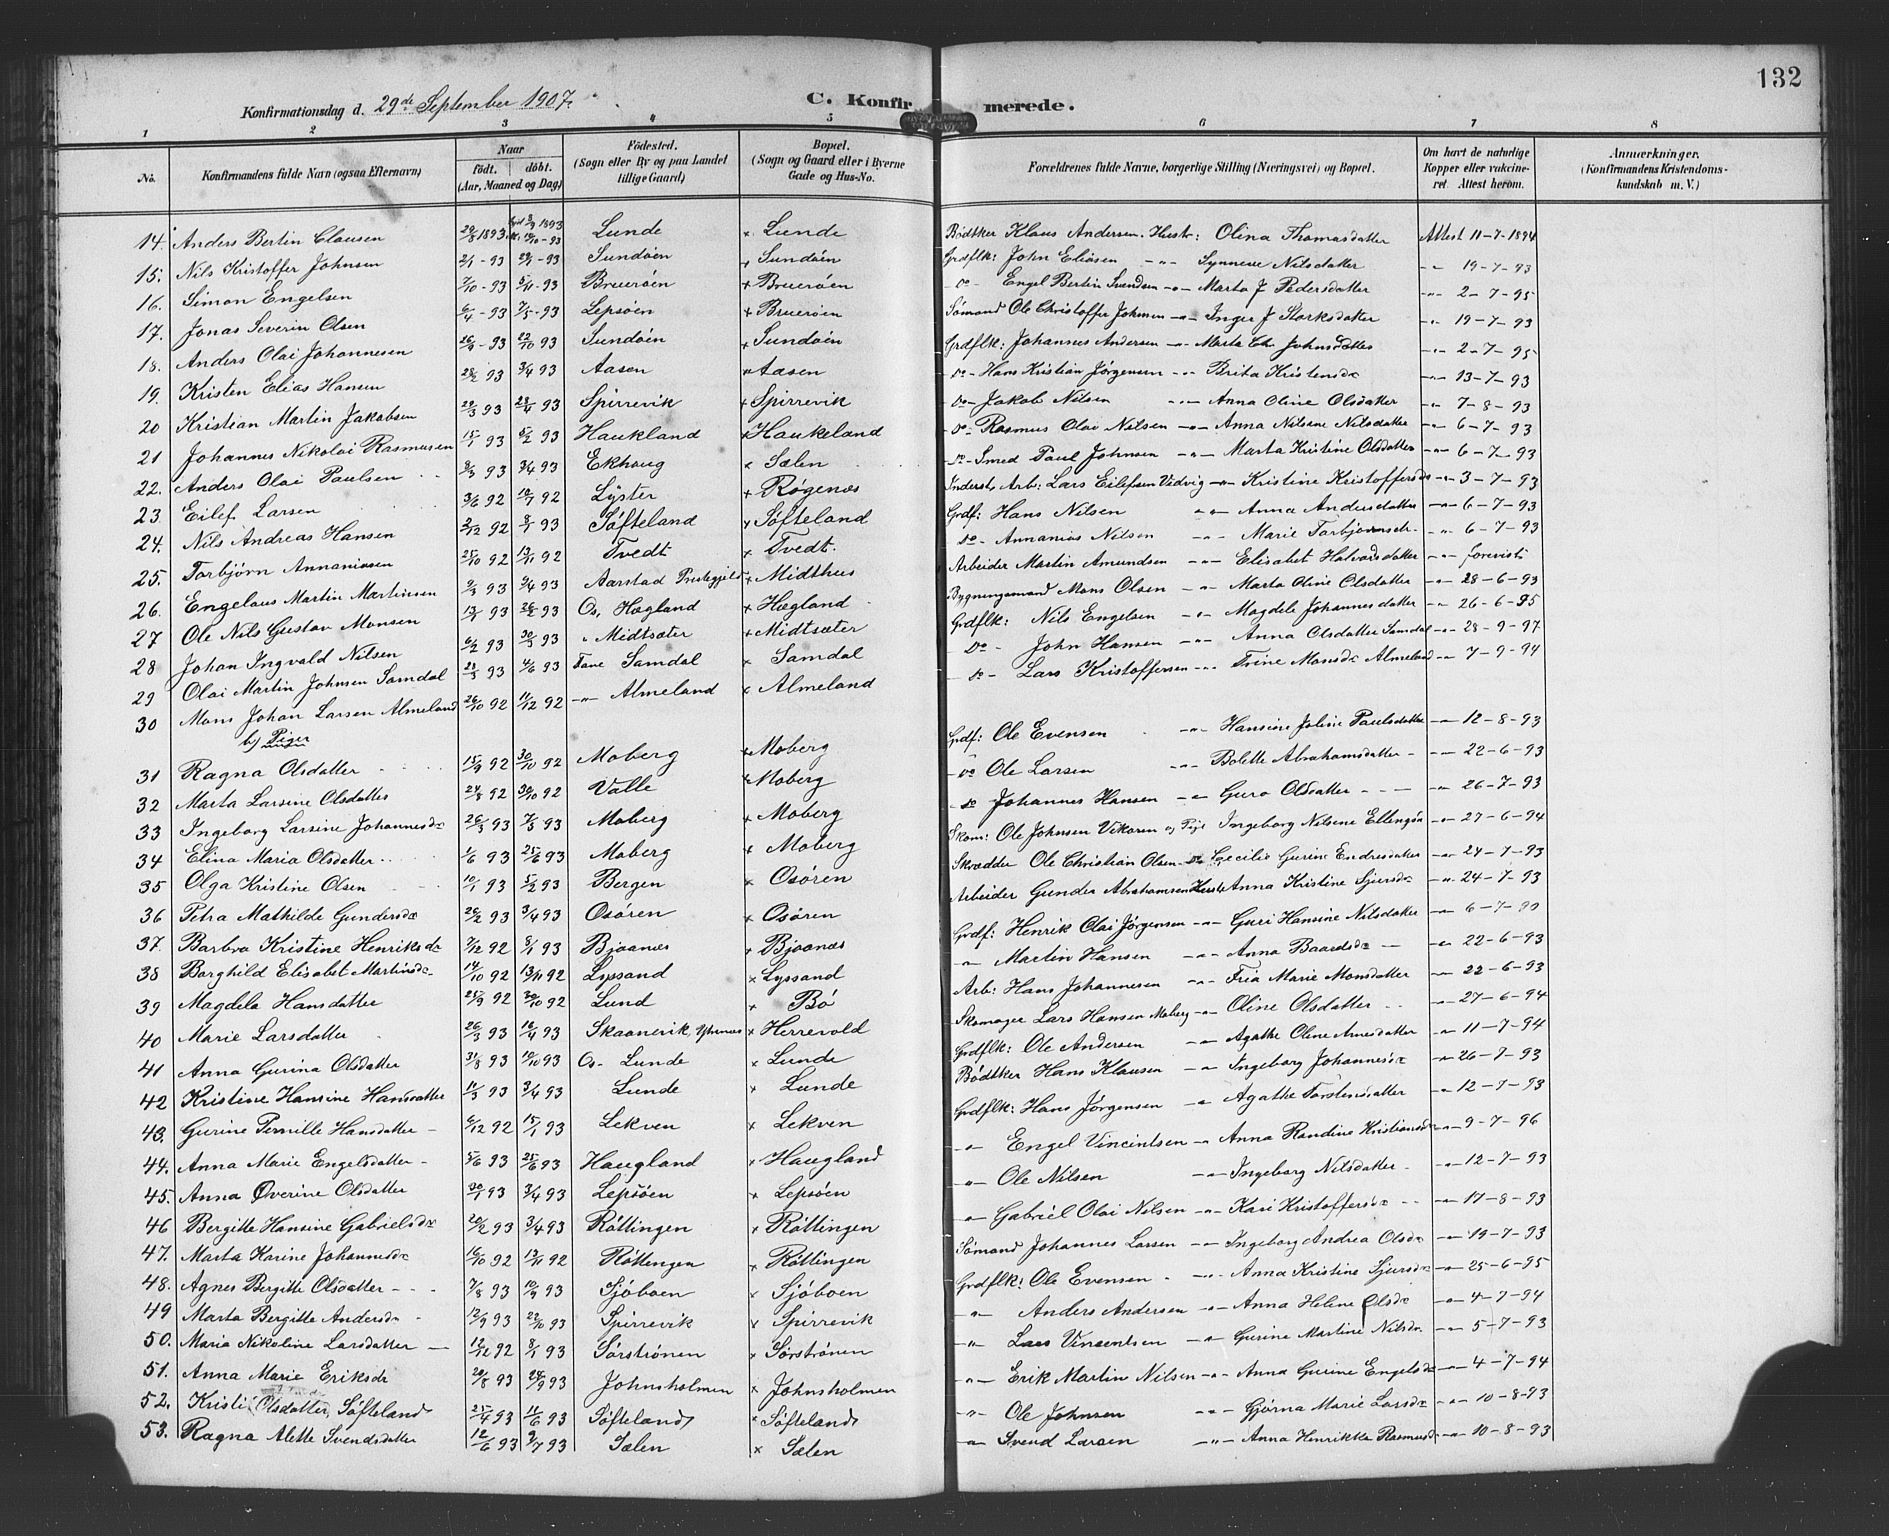 132
Konfirmationsdag d. 29de September 1907. C. Konfirmerede.
1 2 3 4 5 6 7 8
No. Konfirmandens fulde Navn (ogsaa Efternavn) Naar født. døbt. (Aar, Maaned og Dag) Fødested. (Sogn eller By og paa Landet tillige Gaard) Bopæl. (Sogn og Gaard eller i Byerne Gade og Hus-No. Forældrenes fulde Navne, borgerlige Stilling (Næringsvei) og Bopæl. Om havt de naturlige Kopper eller vaccineret. Attest herom. Anmærkninger. (Konfirmandens Kristendomskundskab m. V.)
14. Anders Bertin Clausen 29/8 1893 Lunde × Lunde Bødtker Klaus Andersen. Hustr: Olina Thomasdatter Attest 11-7-1894
15. Nils Kristoffer Johnsen 2/1 - 93 29/1 - 93 Sundöen × Sundöen Grdflk: John Eliasen -"- Synneve Nilsdatter -"- 19-7-93
16. Simon Engelsen 7/10 - 93 5/11 - 93 Brueröen × Brueröen do- Engel Bertin Svendsen -"- Marta J Pedersdatter -"- 2-7-95
17. Jonas Severin Olsen 6/4 - 93 7/5 - 93 Lepsöen × Brueröen Sömand Ole Christoffer Johnsen -"- Inger J Storksdatter -"- 19-7-93
18. Anders Olai Johannesen 26/9 - 93 22/10 93 Sundöen × Sundöen Grdflk: Johannes Andersen -"- Marta Chr. Johnsdatter -"- 2-7-95
19. Kristen Elias Hansen 28/2 93 3/4 93 Aasen × Aasen do- Hans Kristian Jørgensen -"- Brita Kristensdr -"- 13-7-93
20 Kristian Martin Jakobsen 29/3 93 23/4 93 Spirrevik × Spirrevik do- Jakob Nilsen -"- Anna Oline Olsdatter -"- 7-8-93
21 Johannes Nikolai Rasmusen 15/1 93 5/2 93 Haukland × Haukeland do- Rasmus Olai Nilsen -"- Anna Nilsine Nilsdatter -"- 6-7-93
22. Anders Olai Paulsen 9/3 93 3/4 93 Ekhaug × Sælen do- Smed Paul Johnsen -"- Marta Kristine Olsdatter -"- 6-7-93
23. Eilef Larsen 3/6 92 10/7 92 Lyster × Røgenæs Inderst, Arb: Lars Eilefsen Vidvig -"- Kristine Kristoffersdr -"- 3-7-93
24. Nils Andreas Hansen 2/12 92 8/1 93 Söfteland × Söfteland Grdf: Hans Nilsen -"- Anna Andersdatter -"- 6-7-93
25. Torbjörn Annaniasen 25/10 92 13/11 92 Tvedt × Tvedt. do- Annanias Nilsen -"- Marie Torbjørnsdr. -"- 6-7-93
26. Engelaus Martin Martinsen 9/3 93 3/4 93 Aarstad Prestegjeld × Midthus Arbeider Martin Amundsen -"- Elisabet Halvorsdatter -"- forevist
27 Ole Nils Gustav Monsen 13/1 93 26/2 93 Os, Hægland × Hægland Bygningsmand Mons Olsen -"- Marta Oline Olsdatter -"- 28-6-93
28 Johan Ingvald Nilsen 6/2 93 30/3 93 " Midtsæter × Midtsæter Grdflk: Nils Engelsen -"- Magdele Johannesdatter -"- 26-6-95
29 Olai Martin Johnsen Samdal 23/3 93 4/6 93 Fane Samdal × Samdal do- John Hansen -"- Anna Olsdatter Samdal -"- 28-9-97
30 Mons Johan Larsen Almeland 26/10 92 11/12 92 -"- Almeland × Almeland do- Lars Kristoffersen -"- Trine Monsdr Almeland -"- 7-9-94
b) Piger
31 Ragna Olsdatter 15/9 92 30/10 92 Moberg × Moberg Grdf: Ole Evensen -"- Hansine Joline Paulsdatter -"- 12-8-93
32 Marta Larsine Olsdatter 24/8 92 30/10 92 Valle × Moberg do Ole Larsen -"- Bolette Abrahamsdatter -"- 22-6-93
33 Ingeborg Larsine Johannesdr 26/3 93 7/5 93 Moberg × Moberg do Johannes Hansen -"- Guro Olsdatter -"- 26-7-93
34 Elina Maria Olsdatter 1/6 93 25/6 93 Moberg × Moberg Skom: Ole Johnsen Vikoren og Pige Ingeborg Nilsine Ellingsdr -"- 27-6-94
35 Olga Kristine Olsen 10/1 93 5/2 93 Bergen × Osören Skrædder Ole Christian Olsen do Cecilie Gurine Endresdatter -"- 24-7-93
36 Petra Mathilde Gundersdr 26/2 93 3/4 93 Osören × Osören Arbeider Gunder Abrahamsen Hustr Anna Kristine Sjursdr -"- 24-7-93
37. Barbra Kristine Henriksdr 7/12 92 8/1 93 Bjoanæs × Bjoanæs Grdf: Henrik Olai Jørgensen -"- Guri Hansine Nilsdatter -"- 6-7-90
38 Borghild Elisabet Martinsdr 14/10 92 13/11 92 Lyssand × Lyssand -"- Martin Hansen -"- Anna Baardsdr -"- 22-6-93
39 Magdela Hansdatter 25/9 92 Lund × Bö Arb: Hans Johannesen -"- Fria Marie Monsdatter -"- 22-6-93
40 Marie Larsdatter 26/3 93 16/4 93 Skaanevik, × Herrevold Skomager Lars Hansen Moberg -"- Oline Olsdatter -"- 27-6-94
41 Anna Gurina Olsdatter 31/8 93 10/10 93 Os- Lunde × Lunde Grdflk: Ole Andersen -"- Agathe Oline Arnesdatter -"- 11-7-94
42 Kristine Hansine Hansdatter 11/3 93 3/4 93 Lunde × Lunde Bødtker Hans Klausen -"- Ingeborg Johannesdr -"- 26-7-93
43. Gurine Pernille Hansdatter 6/12 92 15/1 93 Lekven × Lekven Grdflk: Hans Jørgensen -"- Agathe Torstensdatter -"- 12-7-93
44. Anna Marie Engelsdatter 5/6 93 25/6 93 Haugland × Haugland -"- Engel Vincintsen -"- Anna Randine Kristiansdr -"- 9-7-96
45. Anna Øverine Olsdatter 30/1 93 3/4 93 Lepsöen × Lepsöen -"- Ole Nilsen -"- Ingeborg Nilsdatter -"- 12-7-93
46 Bergitte Hansine Gabrielsdr 20/2 93 3/4 93 Röttingen × Röttingen -"- Gabriel Olai Nilsen -"- Kari Kristoffersdr -"- 17-8-93
47. Marta Karine Johannesdr 16/10 92 13/11 92 Röttingen × Röttingen Sømand Johannes Larsen -"- Ingeborg Andrea Olsdr -"- 19-7-93
48. Agnes Bergitte Olsdatter 7/8 93 10/9 93 Sjöboen × Sjöboen Grdflk: Ole Evensen -"- Anna Kristine Sjursdr -"- 25-6-95
49 Marta Bergitte Andersdr 12/9 93 22/10 93 Spirrevik × Spirrevik -"- Anders Andersen -"- Anna Helene Olsdr -"- 4-7-94
50. Maria Nikoline Larsdatter 12/12 92 8/1 93 Sörströnen × Sörströnen -"- Lars Vincentsen -"- Gurine Martine Nilsdr. -"- 5-7-93
51. Anna Marie Eriksdr 20/8 93 24/9 93 Johnsholmen × Johnsholmen -"- Erik Martin Nilsen -"- Anna Gurine Engelsdr -"- 4-7-94
52. Kristi Olsdatter, Söfteland 25/4 93 11/6 93 Söfteland × Söfteland -"- Ole Johnsen -"- Gjørna Marie Larsdr -"- 10-8-93
53. Ragna Alette Svendsdatter 12/6 93 2/7 93 Sælen × Sælen -"- Svend Larsen -"- Anna Henrikke Rasmusdr -"- 10-8-93